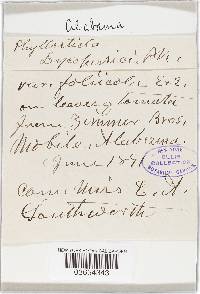 Alabama
Phyllosticta
Lycopersici, Pk.
var. foliicola E&E
on leaves of tomato
from Zimmer Bros.
Mobile, Alabama.
June 18
NEW YORK
ELLIS
COLLECTION
BOTANICAL GARDEN
com. Miss E. A.
Southworth